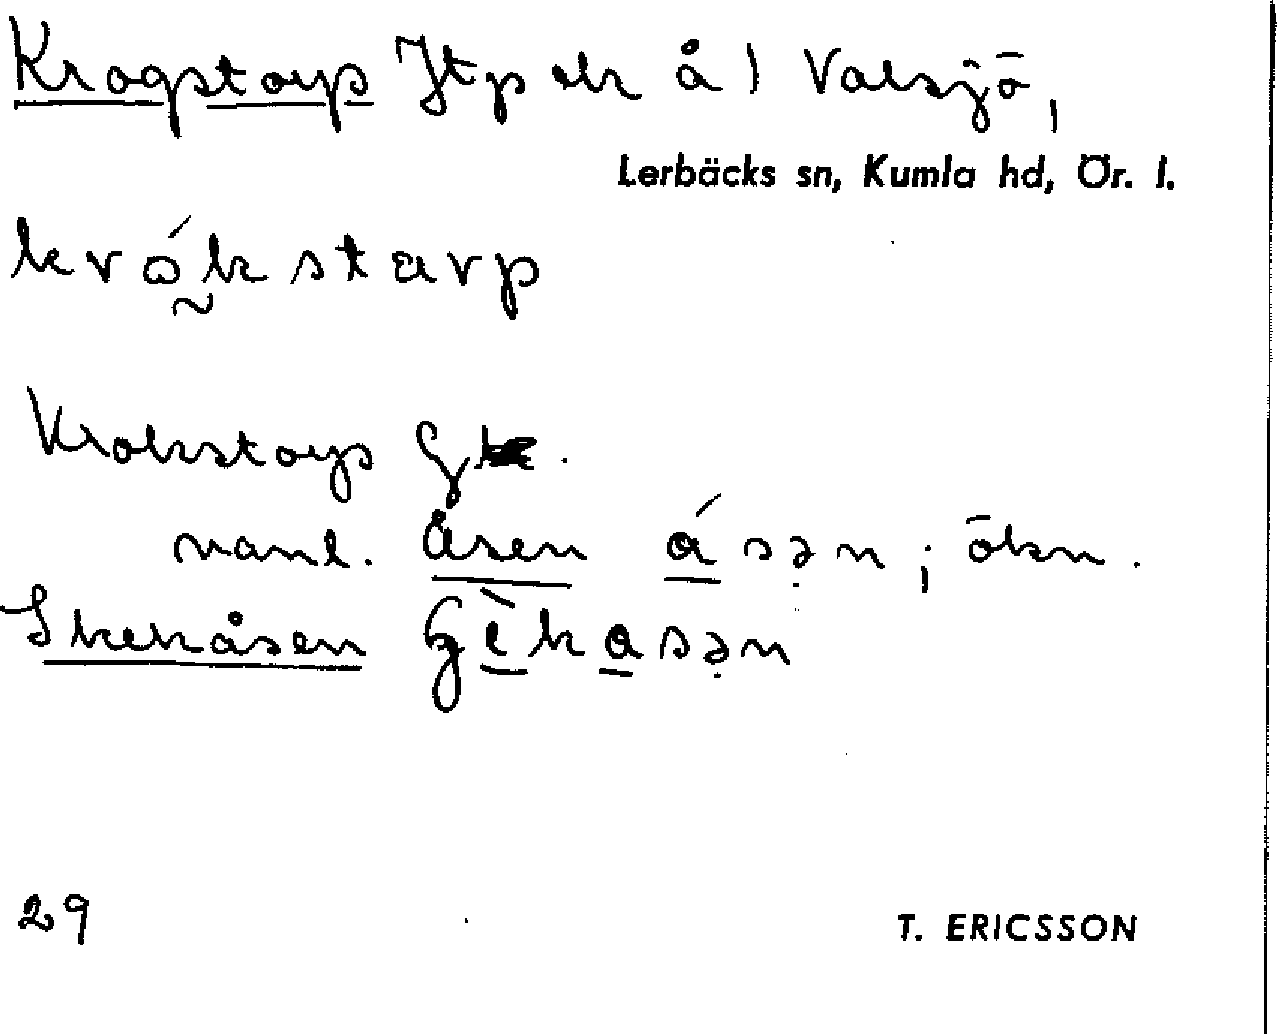 Krogstorp Jtp ek å 1 Valsjö,
Lerbäcks sn, Kumla hd, Ör. l.
krókstarp
Krokstorp
vanl. Åsen ásən; ökn.
Skekåsen
29
T. ERICSSON